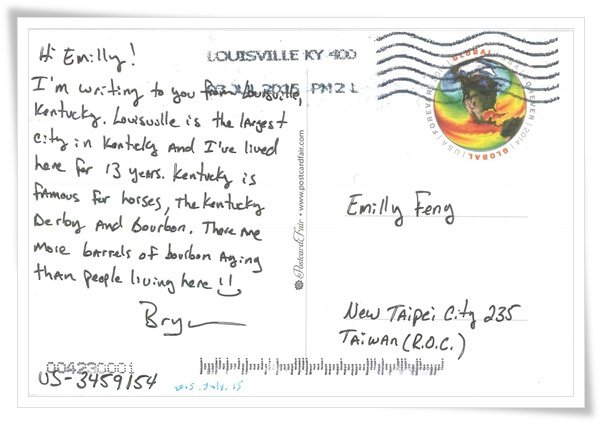 Hi Emilly!
I'm writing to you from Louisville,
Kentucky. Louisville is the largest
city in Kentucky and I've lived
here for 13 years. Kentucky is
famous for horses, the Kentucky
Derby and Bourbon. There are
more barrels of bourbon aging
than people living here!!
Bry
004230001
US-3459154
LOUISVILLE KY 400
JUL 2015 PM 2 L
PostcardFair • www.postcardfair.com
GLOBAL | USA | FOREVER | 2014 | GLOBAL | USA | FOREVER | 2014
Emilly Feng
New Taipei City 235
Taiwan (R.O.C.)